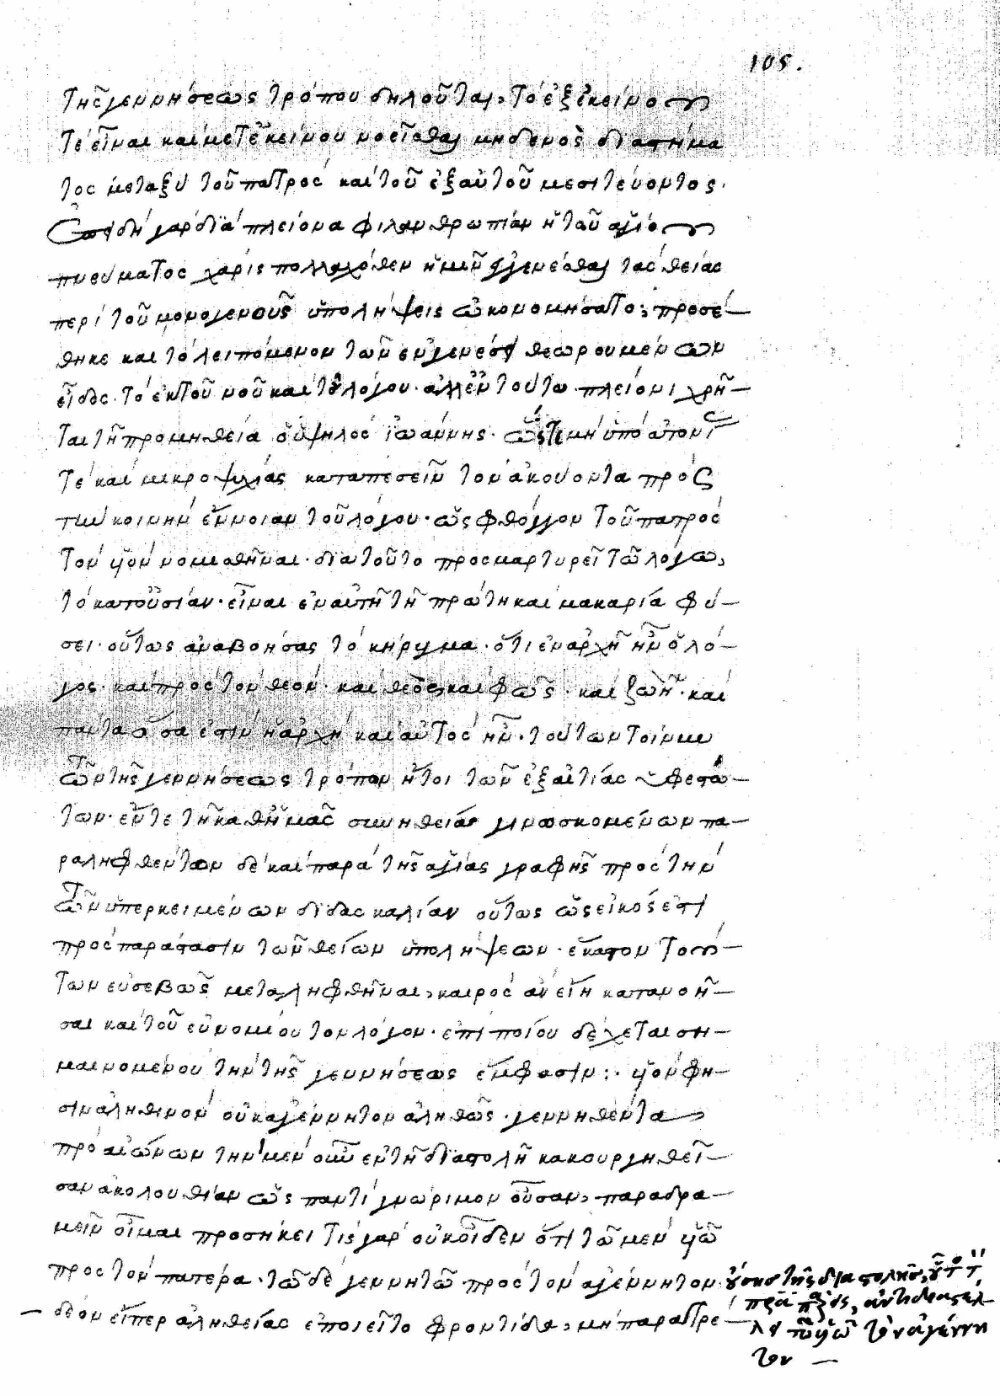 105.
τῆς γεννήσεως τρόπου δηλοῦται, τὸ ἐξ ἐκείνου
τὲ εἶναι καὶ μετ' ἐκείνου νοεῖσθαι μηδενὸς διαστήμα
τος μεταξὺ τοῦ πατρὸς καὶ τοῦ ἐξ αὐτοῦ μεσιτεύοντος.
Ἐπειδὴ γὰρ διὰ πλείονα φιλανθρωπίαν ἡ τοῦ ἁγίου
πνεύματος χάρις πολλαχόθεν ἡμῖν ἐγγενέσθαι τὰς θείας
περὶ τοῦ μονογενοῦς ὑπολήψεις ὠκονομήσατο, προσέ–
θηκε καὶ τὸ λειπόμενον τῶν ἐν γενέσει θεωρουμένων
εἶδος. τὸ ἐκ τοῦ νοῦ καὶ τοῦ λόγου. ἀλλ' ἐν τούτῳ πλείονι χρῆ–
ται τῇ προμηθείᾳ ὁ ὑψηλὸς ἰωάννης. ὥς τε μὴ ὑπὸ ἀτονί
τὲ καὶ μικροψυχίας καταπεσεῖν τὸν ἀκούοντα πρὸς
τὴν κοινὴν ἔννοιαν τοῦ λόγου. ὡς φθόγγον τοῦ πατρὸς
τὸν υἱὸν νομισθῆναι. διὰ τοῦτο προσμαρτυρεῖ τῷ λόγῳ,
τὸ κατ' οὐσίαν. εἶναι ἐν αὐτῇ τῇ πρώτῃ καὶ μακαρίᾳ φύ–
σει. οὕτως ἀναβοήσας τὸ κήρυγμα. ὅτι ἐν ἀρχῇ ἦν ὁ λό–
γος. καὶ πρὸς τὸν θεὸν. καὶ θεὸς, καὶ φῶς. καὶ ζωὴ. καὶ
πάντα ὅσα ἐστὶν ἡ ἀρχὴ καὶ αὐτὸς ἦν. τούτων τοίνυν
τῶν τῆς γεννήσεως τρόπων ἤτοι τῶν ἐξ αἰτίας ὑφεστώ–
των. ἔν τε τῇ καθ' ἡμᾶς συνηθείᾳ γινωσκομένων πα–
ραληφθέντων δὲ καὶ παρὰ τῆς ἁγίας γραφῆς πρὸς τὴν
τῶν ὑπερκειμένων διδασκαλίαν οὕτως ὡς εἰκός ἐστι
πρὸς παράστασιν τῶν θείων ὑπολήψεων. ἕκαστον τού–
των εὐσεβῶς μεταληφθῆναι, καιρὸς ἂν εἴη κατανοῆ–
σαι καὶ τοῦ εὐνομίου τὸν λόγον. ἐπὶ ποίου δέχεται ση–
μαινομένου τὴν τῆς γεννήσεως ἔμφασιν:. υἱὸν φη–
σὶν ἀληθινὸν οὐκ ἀγέννητον ἀληθῶς. γεννηθέντα
πρὸ αἰώνων τὴν μὲν οὖν ἐν τῇ διαστολῇ κακουργηθεῖ–
σαν ἀκολουθίαν ὡς παντὶ γνώριμον οὖσαν, παραδρα–
μεῖν οἶμαι προσήκει τίς γὰρ οὐκ οἶδεν ὅτι τῷ μὲν υἱῷ
πρὸς τὸν πατέρα. τῷ δὲ γεννητῷ πρὸς τὸν ἀγέννητον
– δέον εἴπερ ἀληθείας ἐποιεῖτο φροντίδα, μὴ παρατρέ–
οὔσης τῆς διαστολῆς,
ἀντιδιαστέλ
λει τῷ υἱῷ τὸν ἀγέννη
τον –